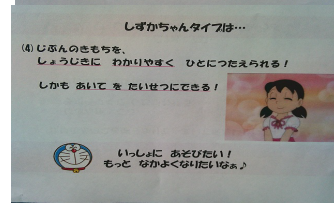 しずかちゃんタイプは…
(4)じぶんのきもちを、
しょうじきに わかりやすく ひとにつたえられる！
しかも あいて を たいせつにできる！
いっしょに あそびたい！
もっと なかよくなりたいなぁ♪